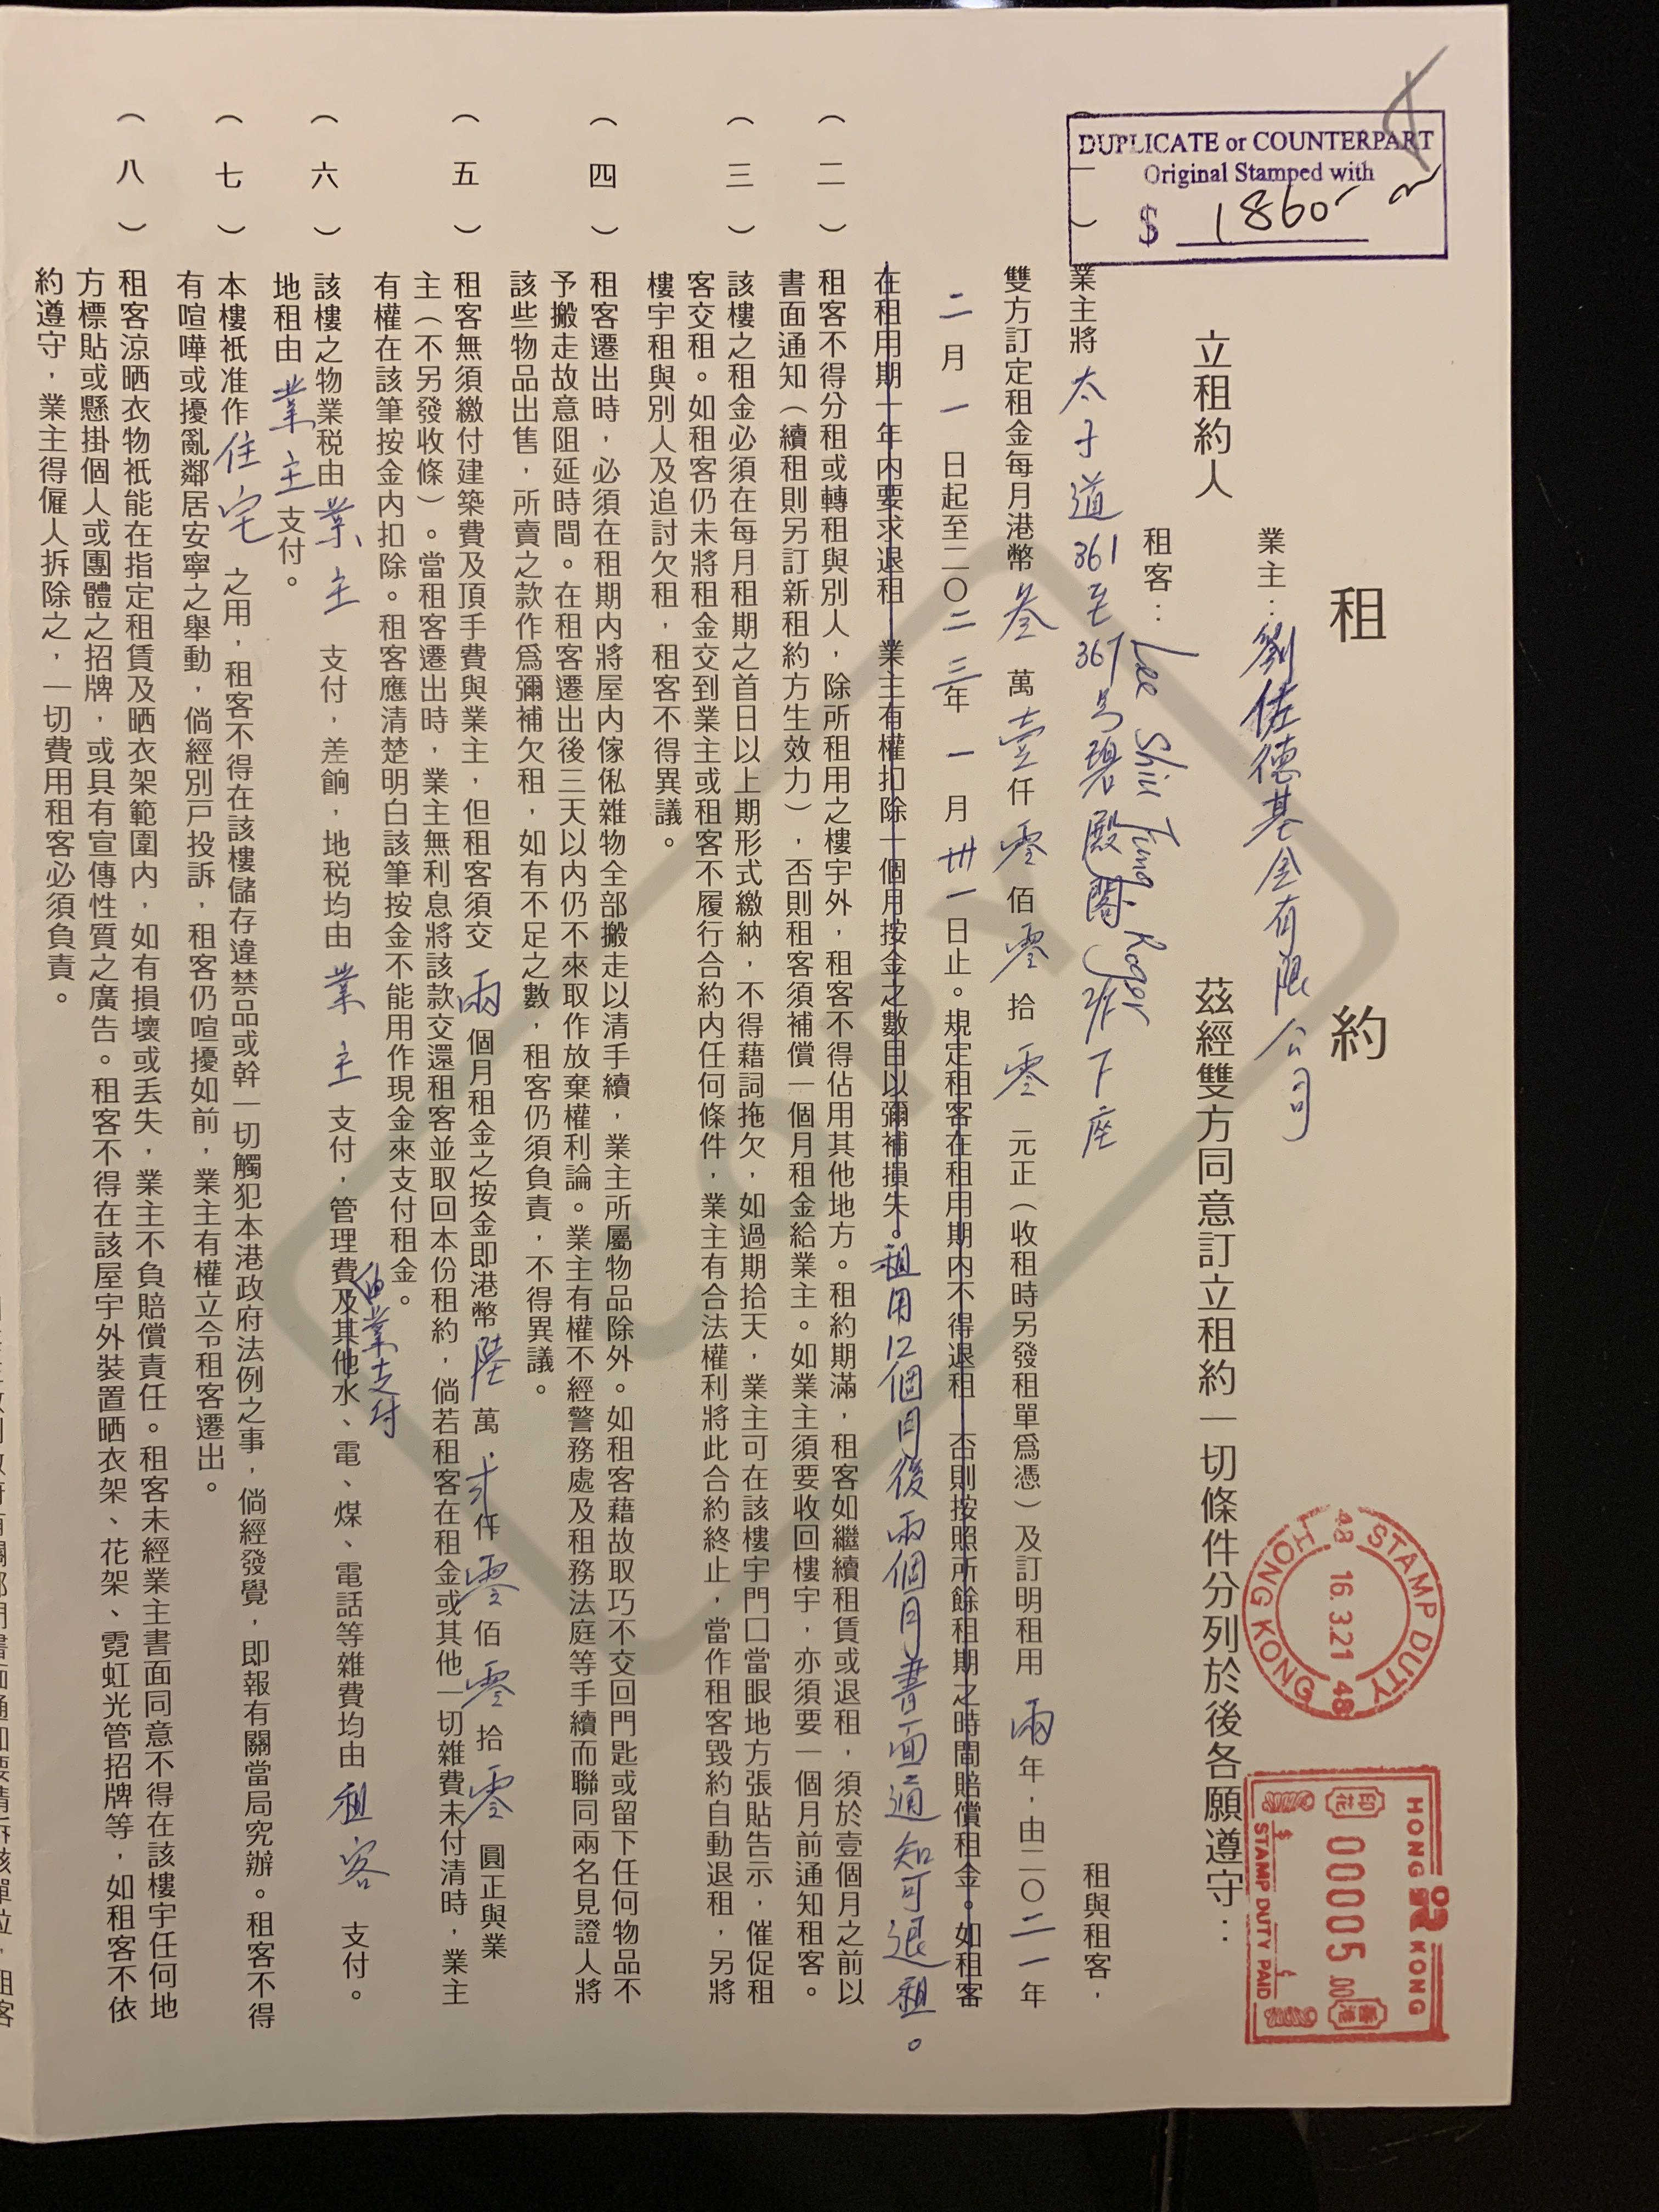 DUPLICATE or COUNTERPART
Original Stamped with
$ 1860
租 約
業主：劉佐德基金有限公司
立租約人 茲經雙方同意訂立租約一切條件分列於後各願遵守：
租客：Lee Shiu Tung, Roger
（一） 業主將 太子道361至367号碧殿閣 下座 租與租客，
雙方訂定租金每月港幣 叁 萬 壹 仟 零 佰 零 拾 零 元正（收租時另發租單爲憑）及訂明租用 兩 年，由二〇二一年
二月一日起至二〇二三年一月卅一日止。規定租客在租用期內不得退租 否則按照所餘租期之時間賠償租金。如租客
在租用期一年內要求退租 業主有權扣除一個月按金之數目以彌補損失。租用12個月後兩個月書面通知可退租。
（二） 租客不得分租或轉租與別人，除所租用之樓宇外，租客不得佔用其他地方。租約期滿，租客如繼續租賃或退租，須於壹個月之前以
書面通知（續租則另訂新租約方生效力），否則租客須補償一個月租金給業主。如業主須要收回樓宇，亦須要一個月前通知租客。
（三） 該樓之租金必須在每月租期之首日以上期形式繳納，不得藉詞拖欠，如過期拾天，業主可在該樓宇門口當眼地方張貼告示，催促租
客交租。如租客仍未將租金交到業主或租客不履行合約內任何條件，業主有合法權利將此合約終止，當作租客毀約自動退租，另將
樓宇租與別人及追討欠租，租客不得異議。
（四） 租客遷出時，必須在租期內將屋內傢俬雜物全部搬走以清手續，業主所屬物品除外。如租客藉故取巧不交回門匙或留下任何物品不
予搬走故意阻延時間。在租客遷出後三天以內仍不來取作放棄權利論。業主有權不經警務處及租務法庭等手續而聯同兩名見證人將
該些物品出售，所賣之款作爲彌補欠租，如有不足之數，租客仍須負責，不得異議。
（五） 租客無須繳付建築費及頂手費與業主，但租客須交 兩 個月租金之按金即港幣 陸 萬 弍 仟 零 佰 零 拾 零 圓正與業
主（不另發收條）。當租客遷出時，業主無利息將該款交還租客並取回本份租約，倘若租客在租金或其他一切雜費未付清時，業主
有權在該筆按金內扣除。租客應清楚明白該筆按金不能用作現金來支付租金。
（六） 該樓之物業税由 業主 支付，差餉，地税均由 業主 支付，管理費及其他水、電、煤、電話等雜費均由 租客 支付。
由業主支付
地租由 業主 支付。
（七） 本樓祇准作 住宅 之用，租客不得在該樓儲存違禁品或幹一切觸犯本港政府法例之事，倘經發覺，即報有關當局究辦。租客不得
有喧嘩或擾亂鄰居安寧之舉動，倘經別戸投訴，租客仍喧擾如前，業主有權立令租客遷出。
（八） 租客涼晒衣物祇能在指定租賃及晒衣架範圍內，如有損壞或丢失，業主不負賠償責任。租客未經業主書面同意不得在該樓宇任何地
方標貼或懸掛個人或團體之招牌，或具有宣傳性質之廣告。租客不得在該屋宇外裝置晒衣架、花架、霓虹光管招牌等，如租客不依
約遵守，業主得僱人拆除之，一切費用租客必須負責。
COPY
STAMP DUTY
48 16.3.21 48
HONG KONG
HONG KONG
印花 00005.00 香港
$ ¢
STAMP DUTY PAID